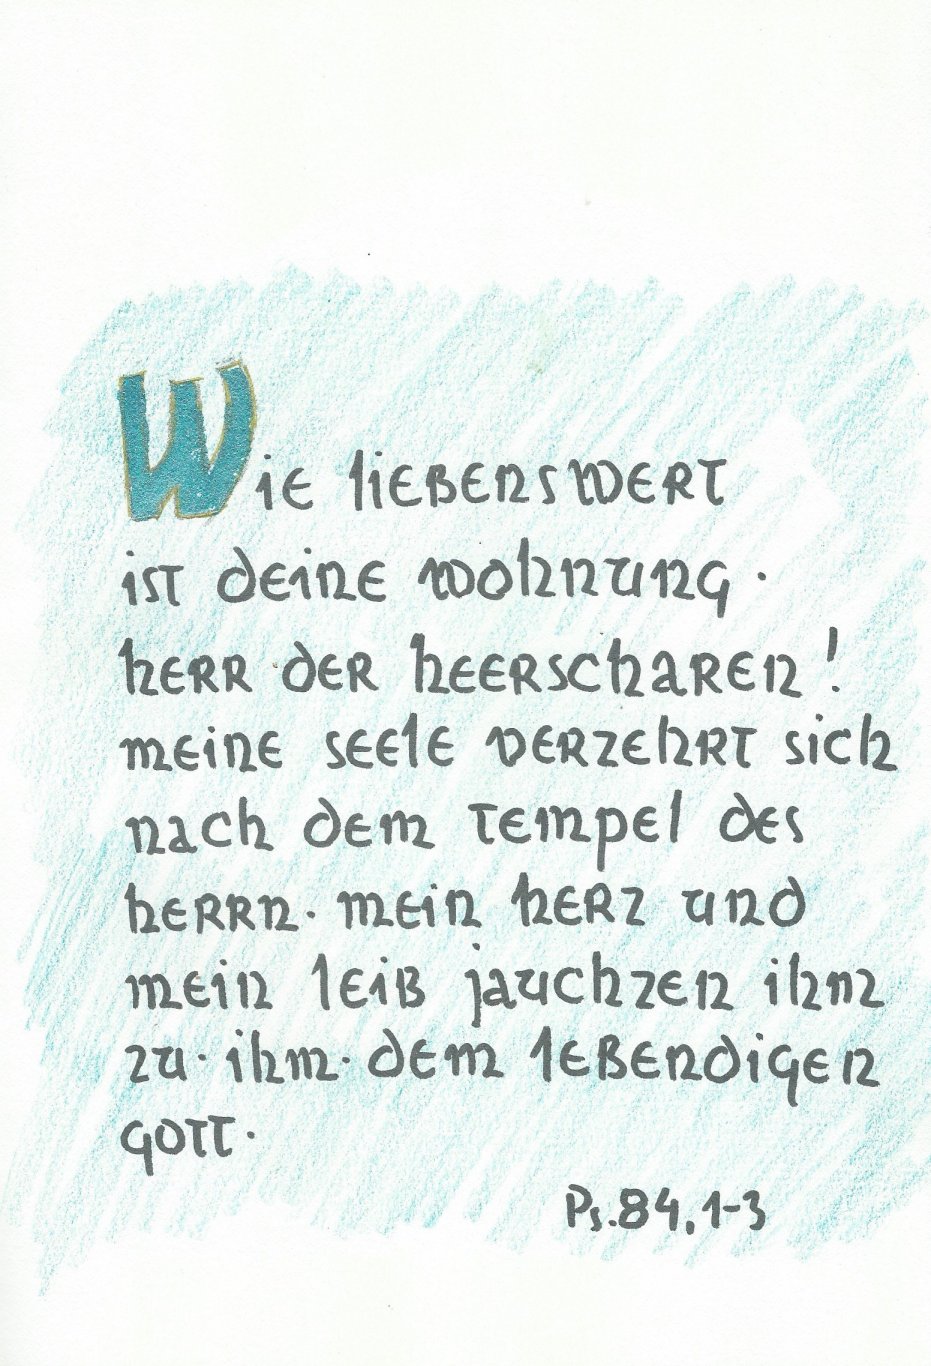 Wie liebenswert
ist deine wohnung ·
herr der heerscharen!
meine seele verzehrt sich
nach dem tempel des
herrn · mein herz und
mein leib jauchzen ihm
zu · ihm · dem lebendigen
gott ·
Ps. 84, 1-3